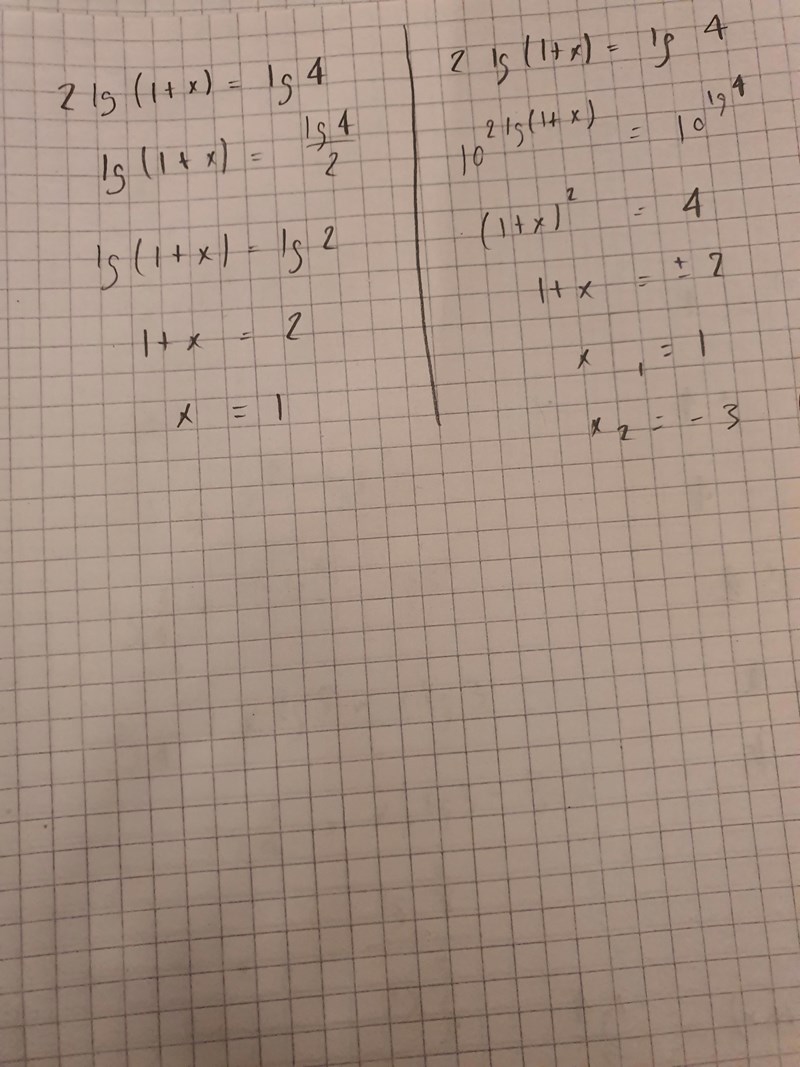 2 lg (1+x) = lg 4
lg (1+x) = lg 4 / 2
lg (1+x) = lg 2
1+x = 2
x = 1
2 lg (1+x) = lg 4
10^2 lg(1+x) = 10^lg 4
(1+x)^2 = 4
1+x = ± 2
x₁ = 1
x₂ = - 3